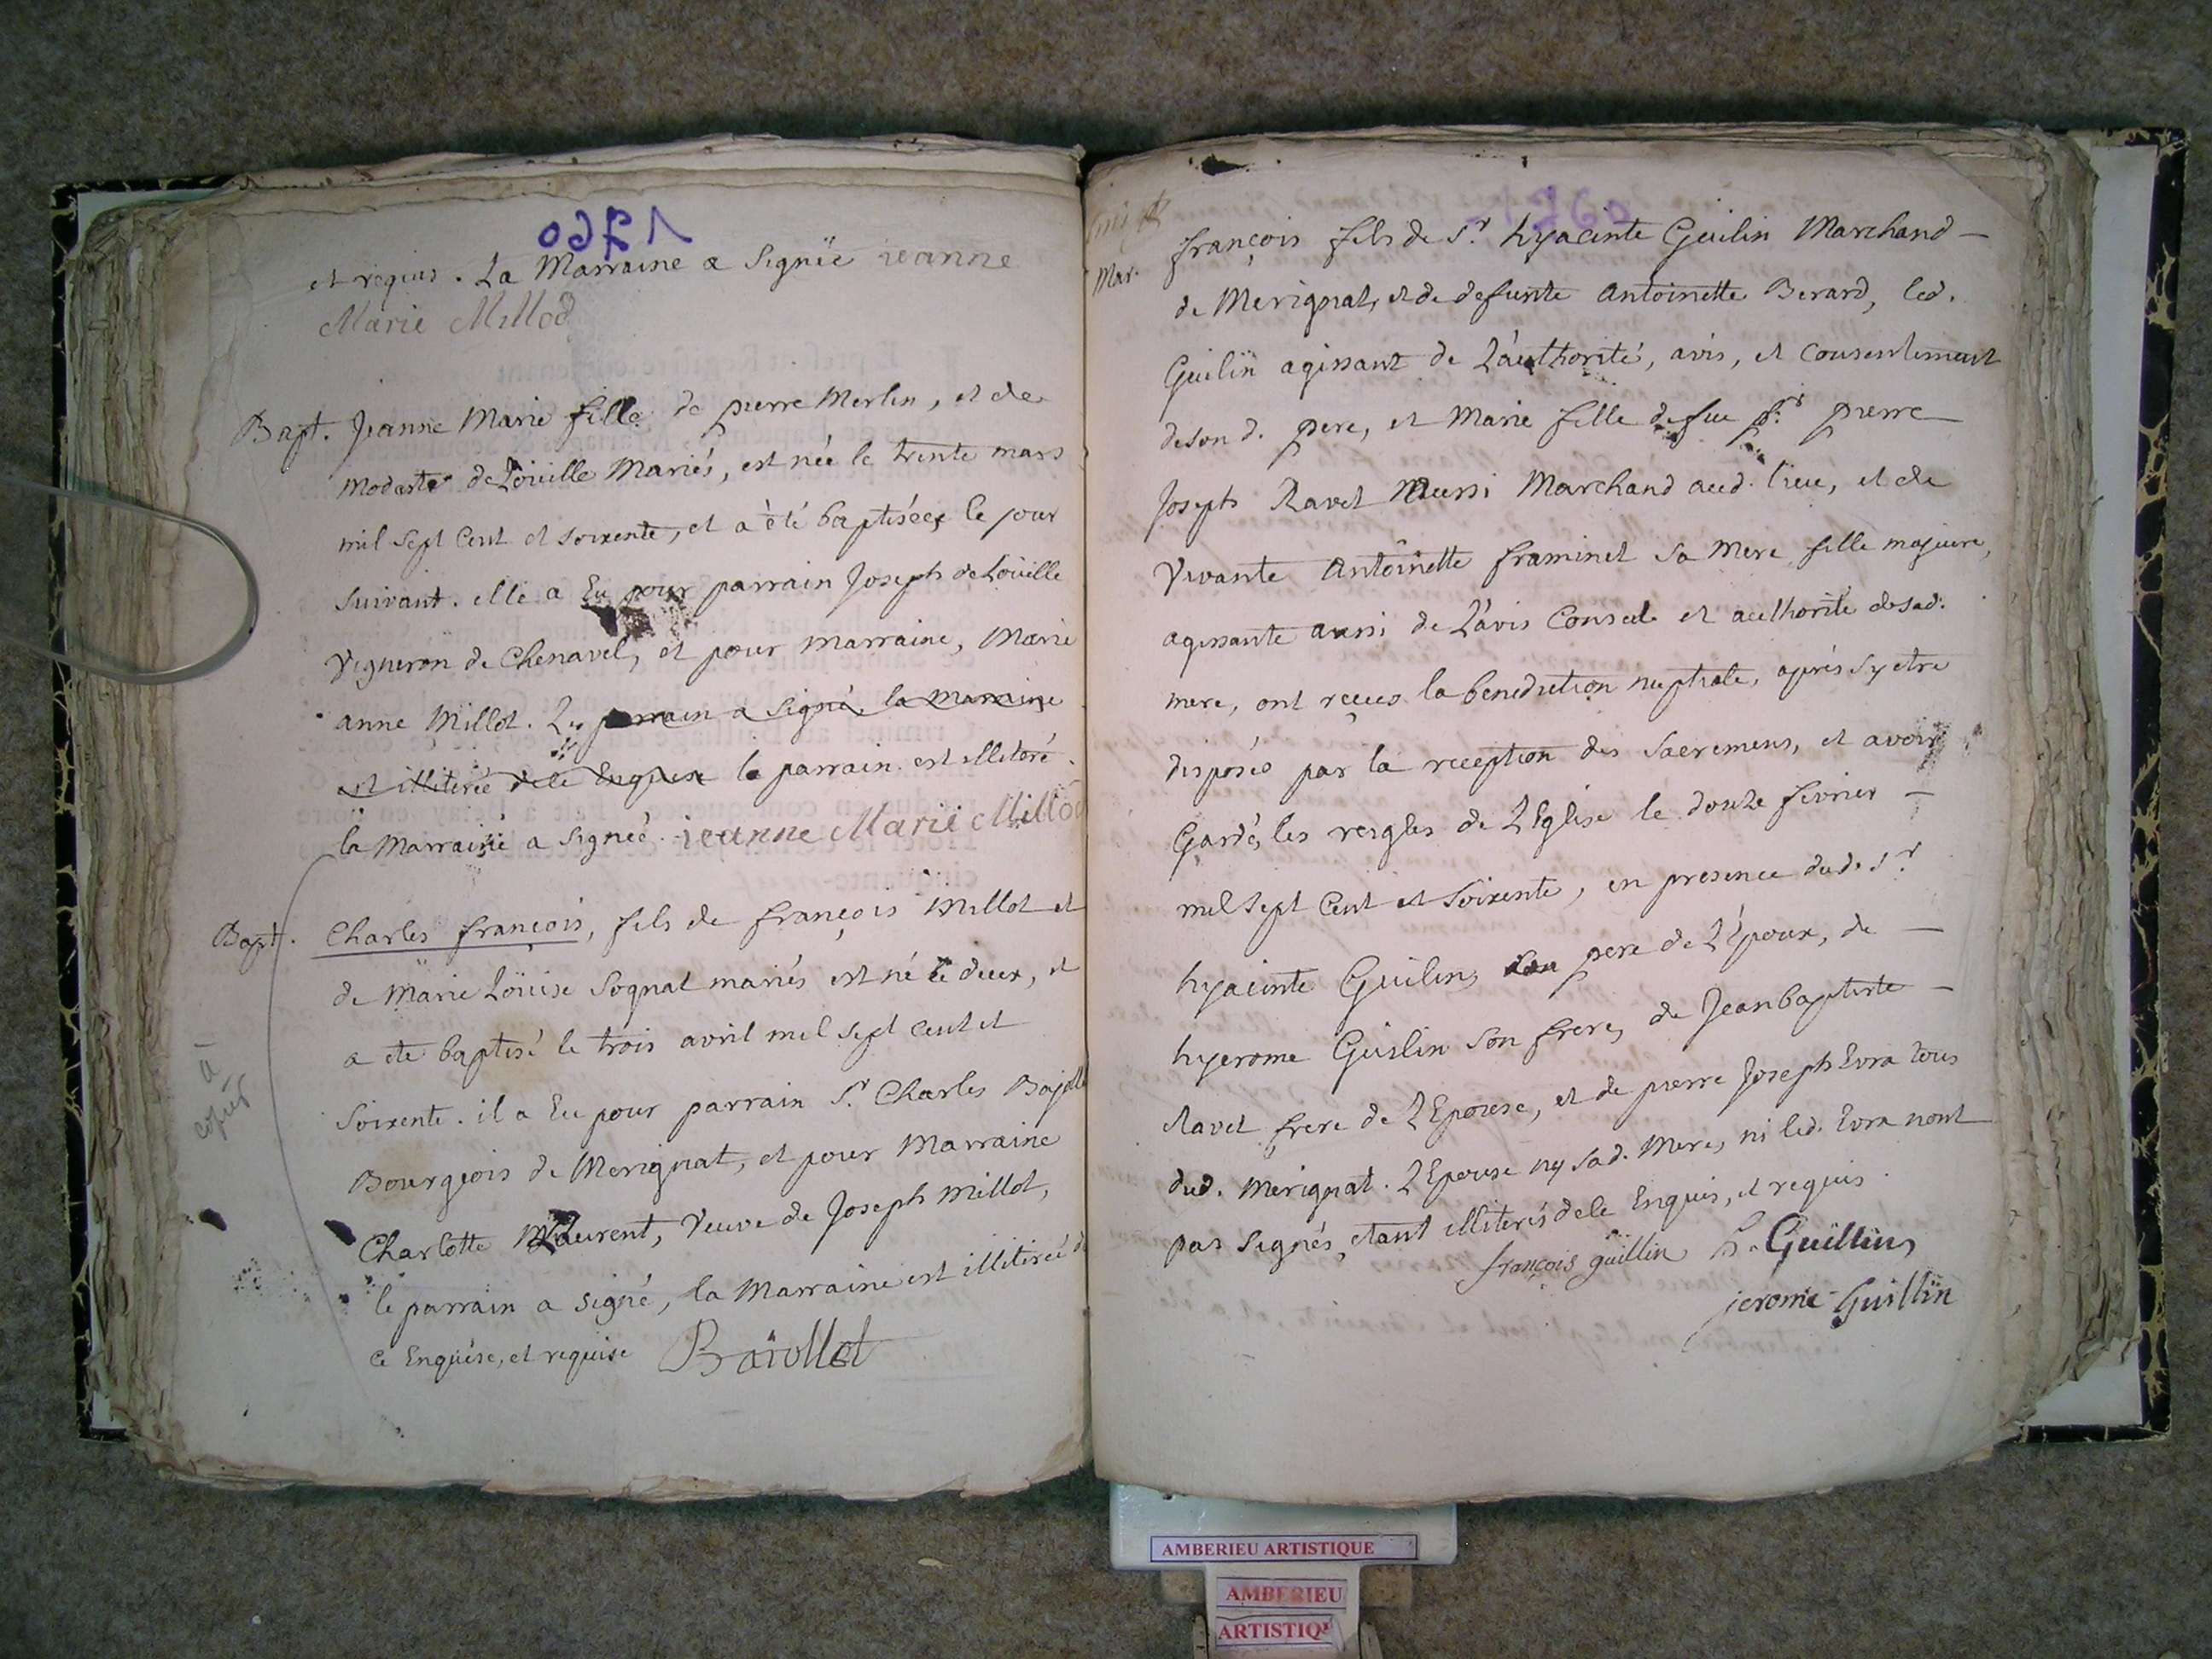 1760
et requis. La Marraine a Signée jeanne
Marie Millod
Bapt. Jeanne Marie fille de pierre Merlin, et de
modeste de Loüille Mariés, est née le trente mars
mil sept Cent et soixente, et a èté baptisée le jour
suivant. elle a Eu pour parrain Joseph de Loüille
Vigneron de Chenavel, et pour marraine, Marie
anne Millot. Le parrain a signé, la marraine
est illiterée de le Enquise le parrain est illiteré
la Marraine a signée. jeanne Marie Millod
Bapt. Charles françois, fils de françois Millot et
de Marie Loüise Sognat mariés est né le deux, et
a ete baptisé le trois avril mil sept cent et
Soixente. il a Eu pour parrain Sr. Charles Bajolle
à copier
Bourgeois de Merignat, et pour Marraine
Charlotte Laurent, Veuve de Joseph Millot,
le parrain a signé, la Marraine est illiterée de
ce Enquise, et requise Baïollet
1760
Mar. françois fils de Sr. hyacinte Guilin Marchand
de Merignat, et de defunte Antoinette Berard, led.
Guilin agissant de L'authorité, avis, et consentement
de son d. pere, et Marie fille de feu Sr. pierre
Joseph Ravet Aussi Marchand aud. lieu, et de
Vivante Antoinette framinet sa Mere fille majeure,
agissante aussi de L'avis Conseil et authorité de sad.
mere, ont reçues la benediction nuptiale, aprés sy etre
disposés par la reception des Sacremens, et avoir
Gardé, les reigles de L'Eglise le douze fevrier
mil sept Cent et Soixente, en presence dud. Sr.
hyacinte Guilin, pere de L'Epoux, de
hyerome Guilin son frere, de Jean baptiste
Ravet frere de L'Epouse, et de pierre Joseph Evra tous
dud. Merignat. L'Epouse ny sad. Mere, ni led. Evra nont
pas signés, etant illiterés de le Enquis, et requis
françois guillin h. Guillin
jerome Guillin
AMBERIEU ARTISTIQUE
AMBERIEU
ARTISTIQ